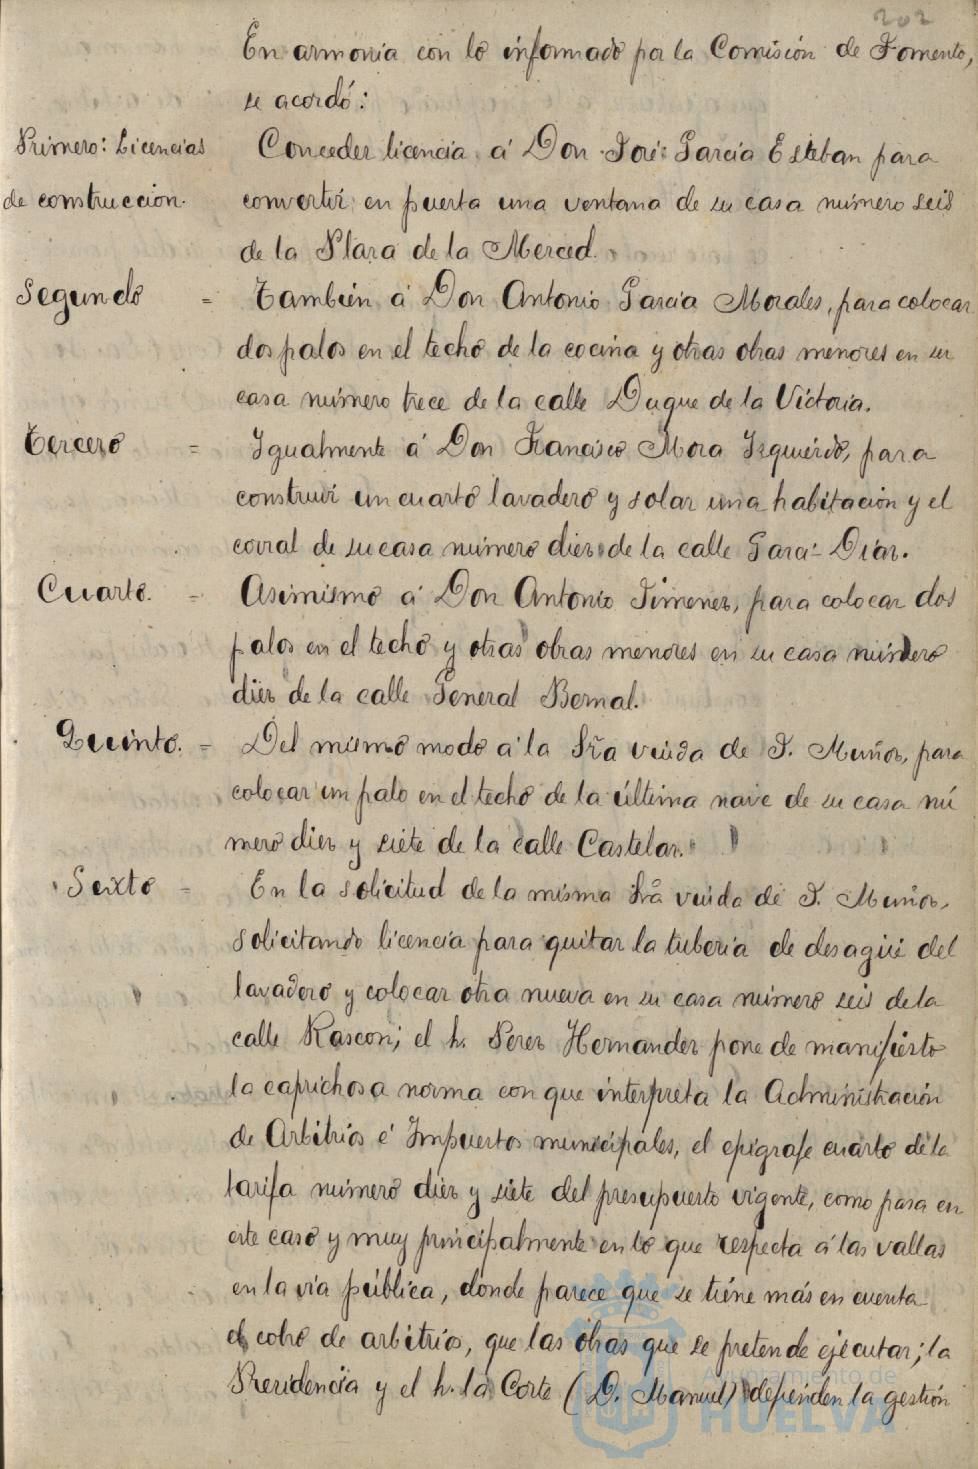 202
En armonía con lo informado por la Comisión de Fomento,
se acordó:
Primero: Licencias
de construcción.
Conceder licencia á Don José García Esteban para
convertir en puerta una ventana de su casa número seis
de la Plaza de la Merced.
Segundo =
También á Don Antonio García Morales, para colocar
dos palos en el techo de la cocina y otras obras menores en su
casa número trece de la calle Duque de la Victoria.
Tercero =
Igualmente á Don Francisco Mora Izquierdo, para
construir un cuarto lavadero y solar una habitación y el
corral de su casa número diez de la calle Garci-Díaz.
Cuarto. =
Asimismo á Don Antonio Jimenez, para colocar dos
palos en el techo y otras obras menores en su casa número
diez de la calle General Bernal.
Quinto. =
Del mismo modo á la Sra viuda de J. Muñoz, para
colocar un palo en el techo de la última nave de su casa nú
mero diez y siete de la calle Castelar.
Sexto =
En la solicitud de la misma Sra viuda de J. Muñoz,
solicitando licencia para quitar la tubería de desagüe del
lavadero y colocar otra nueva en su casa número seis de la
calle Rascon; el h. Perez Hernandez pone de manifiesto
la caprichosa norma con que interpreta la Administración
de Arbitrios é Impuestos municipales, el epígrafe cuarto de la
tarifa número diez y siete del presupuesto vigente, como pasa en
este caso y muy principalmente en lo que respecta á las vallas
en la vía pública, donde parece que se tiene más en cuenta
el cobro de arbitrios, que las obras que se pretende ejecutar; la
Presidencia y el h. la Corte (D. Manuel) defienden la gestión
Ayuntamiento de
HUELVA